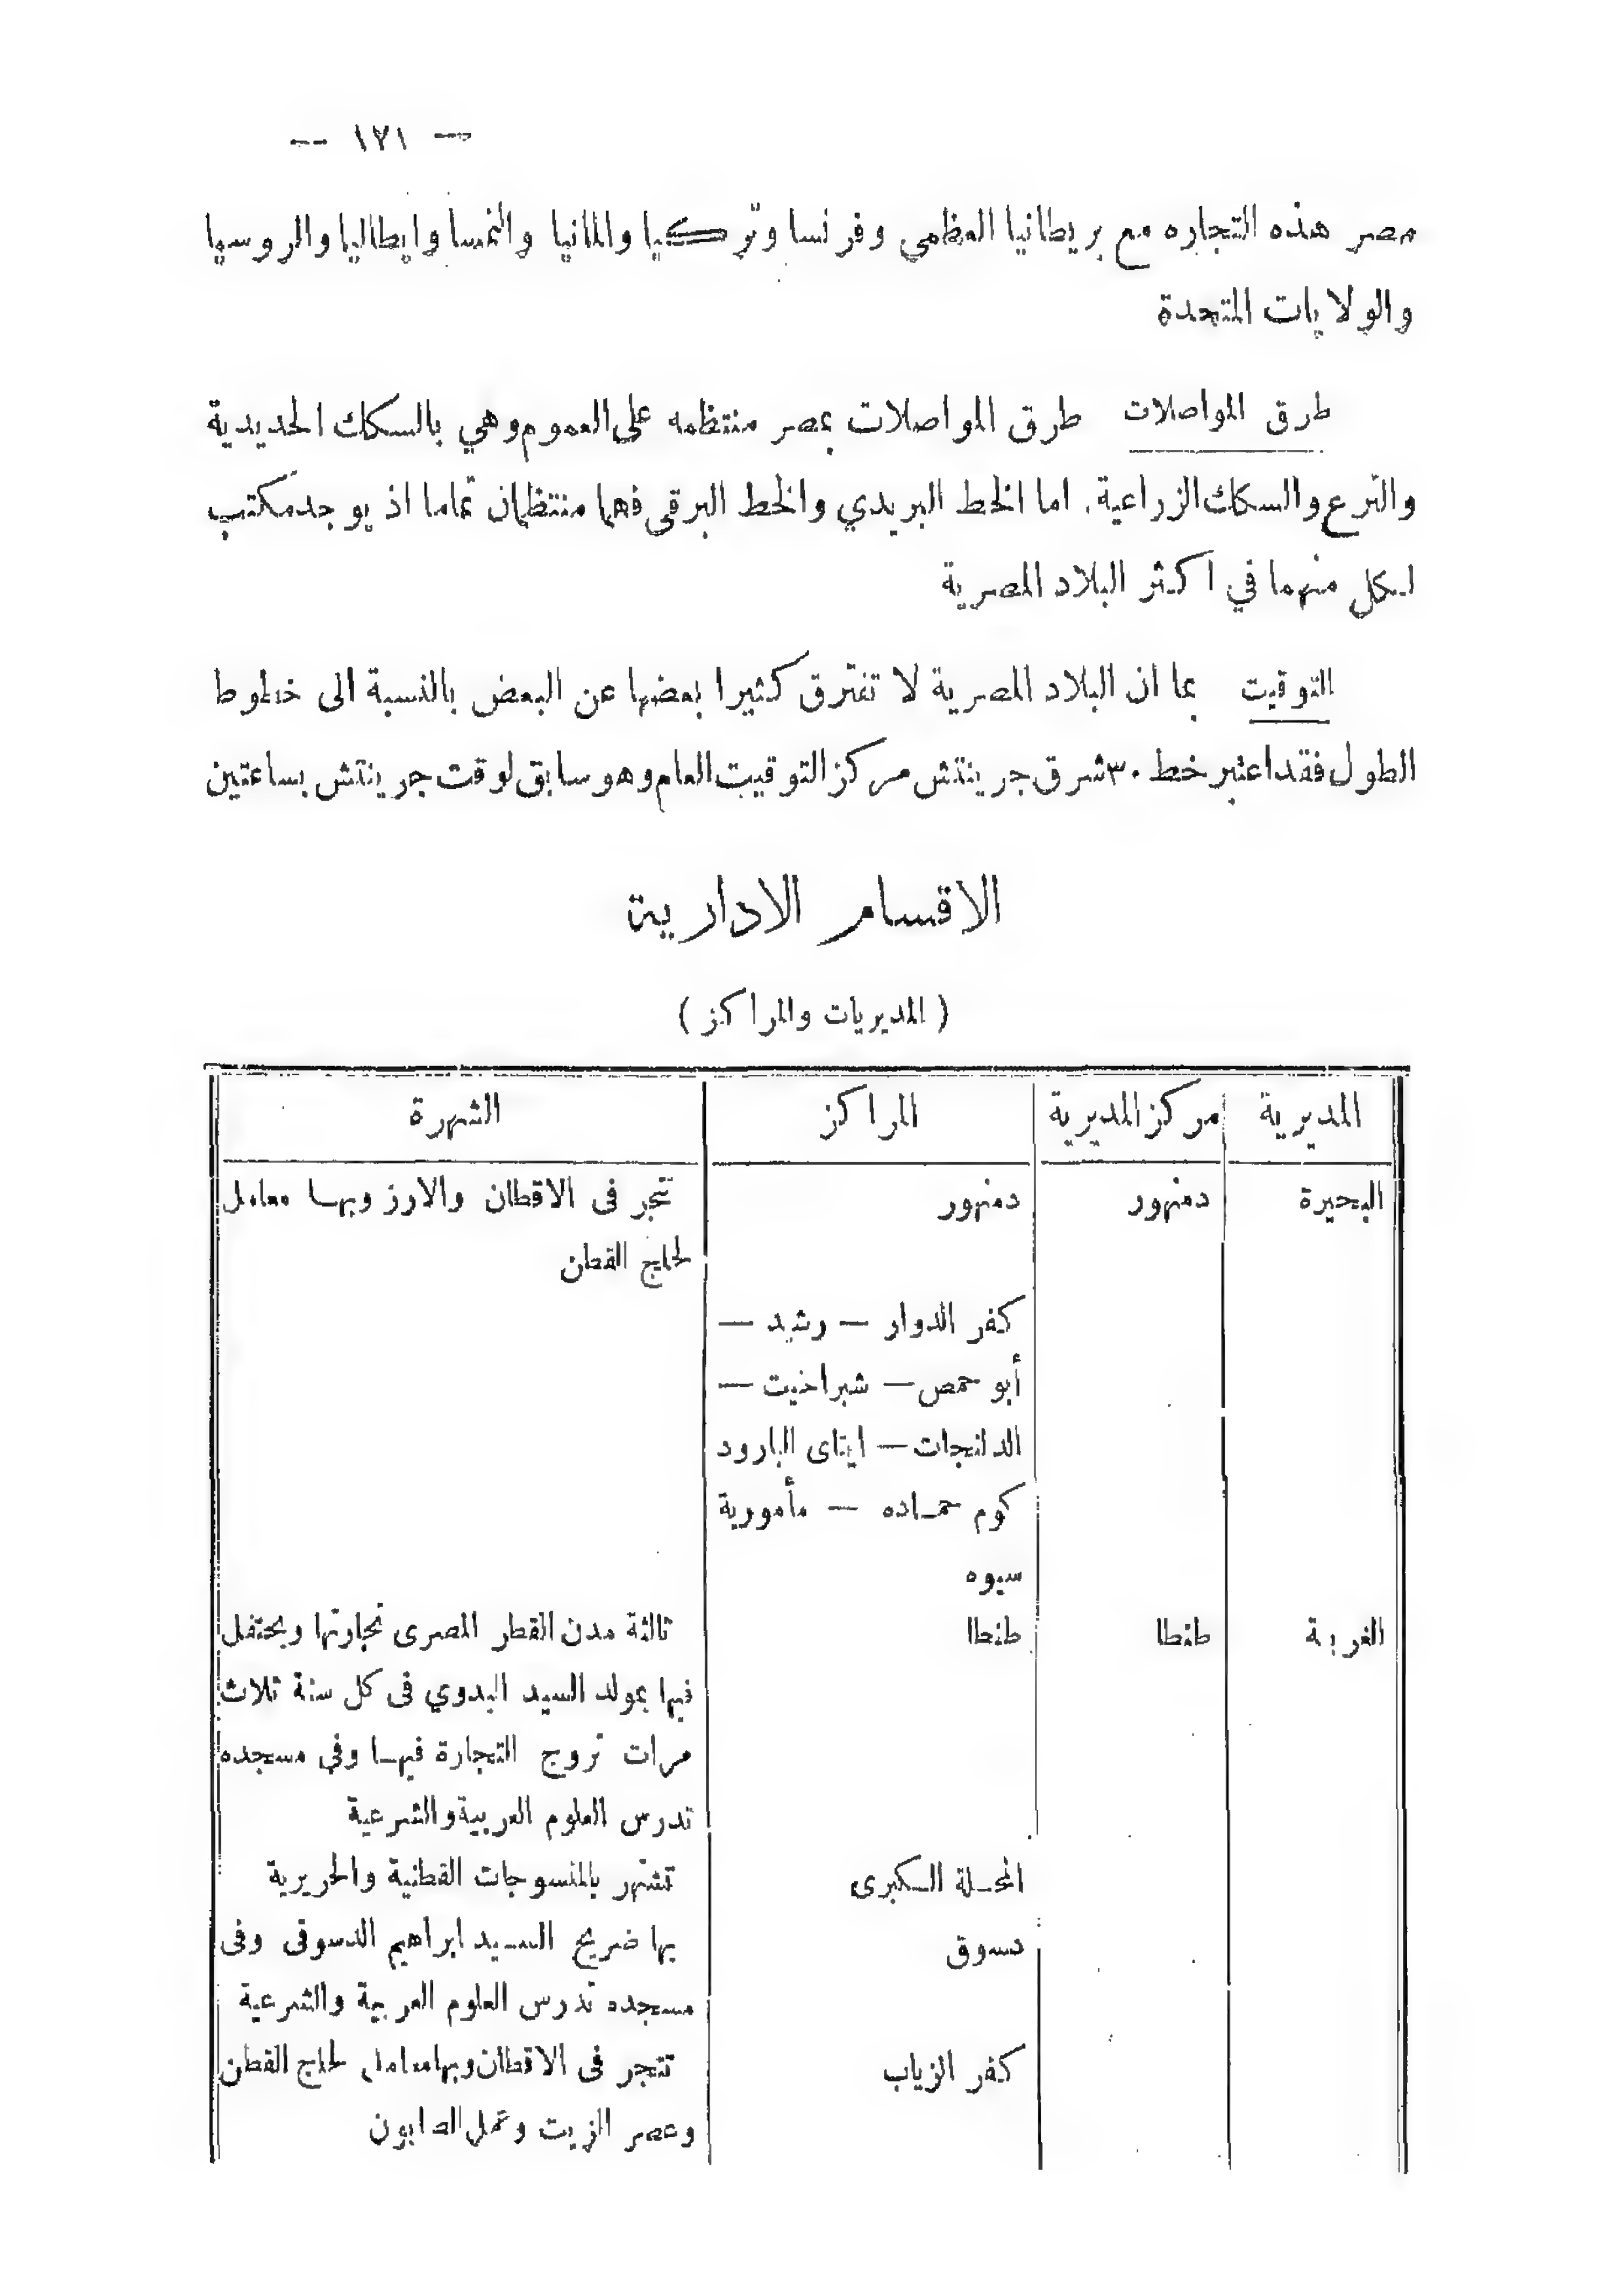 — ١٢١ —
مصر هذه التجاره مع بريطانيا العظمى وفرنسا وتركيا والمانيا والنمسا وايطاليا والروسيا
والولايات المتحدة
طرق المواصلات طرق المواصلات بمصر منتظمه على العموم وهي بالسكك الحديدية
والترع والسكك الزراعية. اما الخط البريدي والخط البرقى فهما منتظمان تماما اذ يوجد مكتب
لكل منهما في اكثر البلاد المصرية
التوقيت بما ان البلاد المصرية لا تفترق كثيرا بعضها عن البعض بالنسبة الى خطوط
الطول فقد اعتبر خط ٣٠ شرق جرينتش مركز التوقيت العام وهو سابق لوقت جرينتش بساعتين
الاقسام الادارية
( المديريات والمراكز )
المديرية مركز المديرية المراكز الشهرة
البحيرة دمنهور دمنهور تتجر فى الاقطان والارز وبها معامل
لحلج القطن
كفر الدوار — رشيد —
أبو حمص — شبراخيت —
الدلنجات — ايتاى البارود
كوم حماده — مأمورية
سيوه
الغربية طنطا طنطا ثالثة مدن القطر المصرى تجارتها ويحتفل
فيها بمولد السيد البدوي فى كل سنة ثلاث
مرات تروج التجارة فيها وفى مسجده
تدرس العلوم العربية والشرعية
المحلة الكبرى تشتهر بالمنسوجات القطنية والحريرية
دسوق بها ضريح السيد ابراهيم الدسوقى وفى
مسجده تدرس العلوم العربية والشرعية
كفر الزيات تتجر فى الاقطان وبها معامل لحلج القطن
وعصر الزيت وعمل الصابون